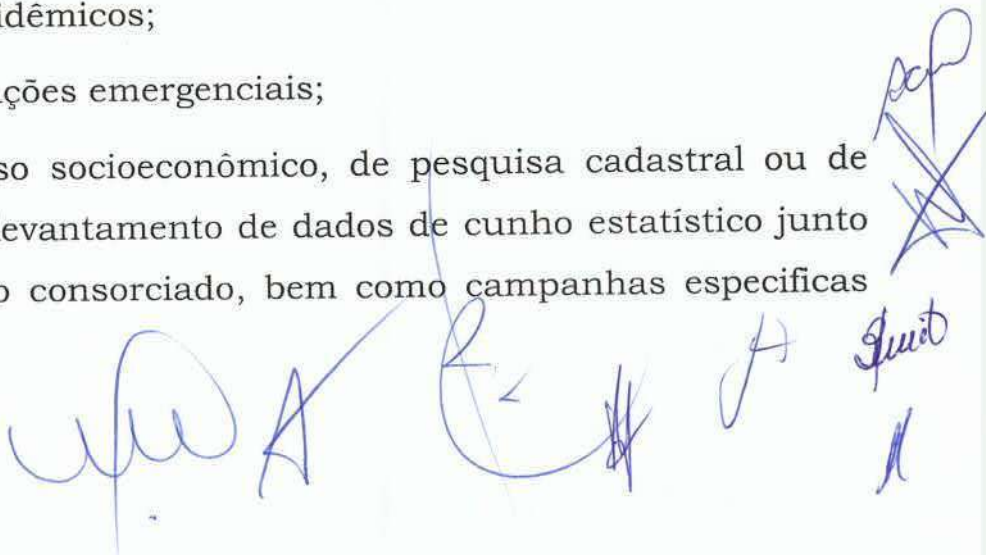 idêmicos;
ções emergenciais;
so socioeconômico, de pesquisa cadastral ou de
levantamento de dados de cunho estatístico junto
o consorciado, bem como campanhas especificas